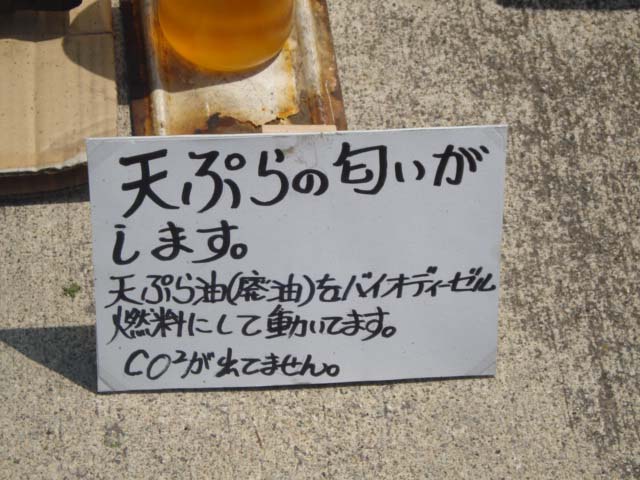 天ぷらの匂いが
します。
天ぷら油(廃油)をバイオディーゼル
燃料にして動いてます。
CO²が出てません。